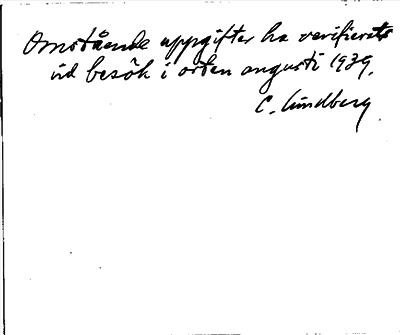 Omstående uppgifter ha verifierats
vid besök i orten augusti 1939.
C. Lindberg